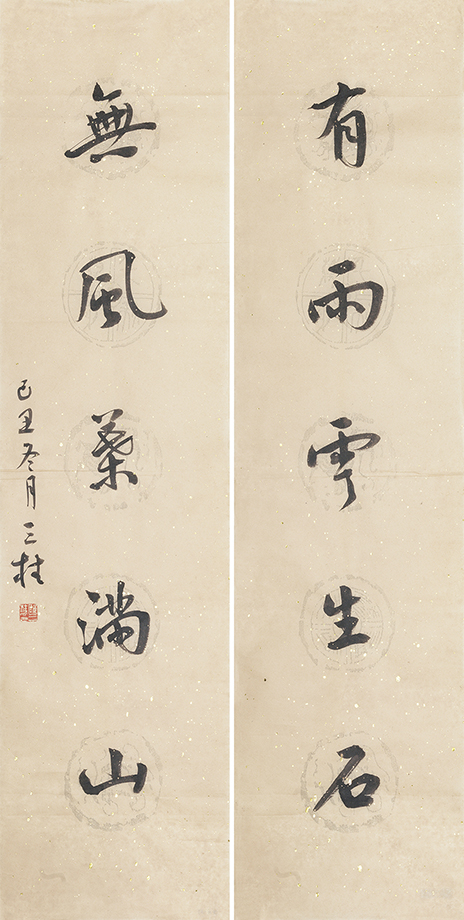 有雨雲生石
無風葉滿山
己丑冬月三桂